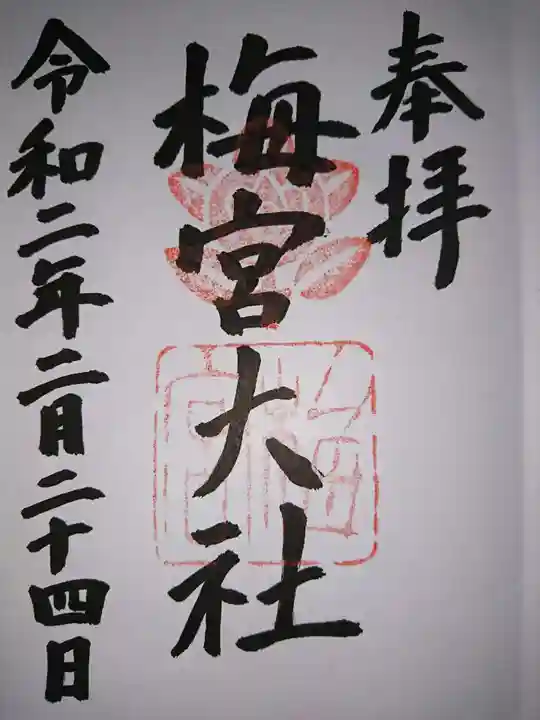 奉拝
梅宮大社
令和二年二月二十四日